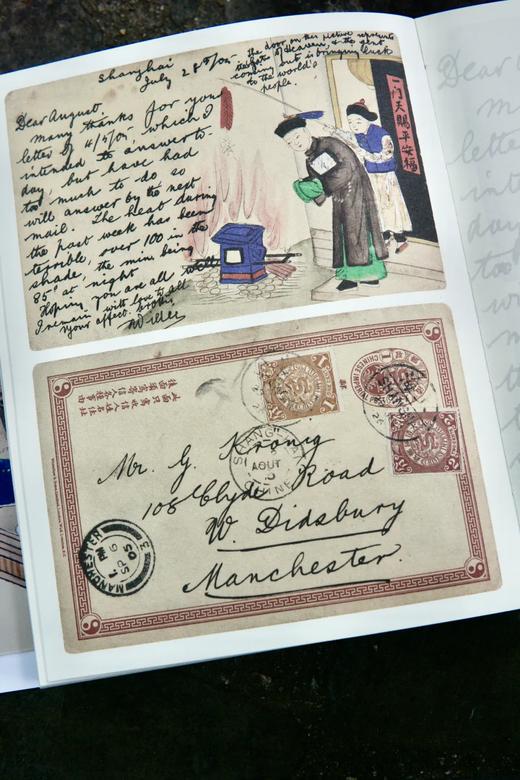 Shanghai
July 28th/05
the door on this picture represents
the gate of Heaven & the gent
coming out is bringing luck
to the world's
people.
Dear August,
Many thanks for your
letter of 4/5/05 which I
intended to answer to-
day, but have had
too much to do so
will answer by the next
mail. The heat during
the past week has been
terrible, over 100 in the
shade, the min being
85° at night
Hoping you are all well
I remain with love to all
your affect. brother
一門天賜平安福
CHINESE IMP
後面只寫收信人名姓住址
此面寫寄信人各種事由
SHANGHAI
AOUT
CHINE
Mr. G. Kronig
108 Clyde Road
W. Didsbury
Manchester.
MANCHESTER
PM
SP
05
3
Dear
letter
int
day
too
wi